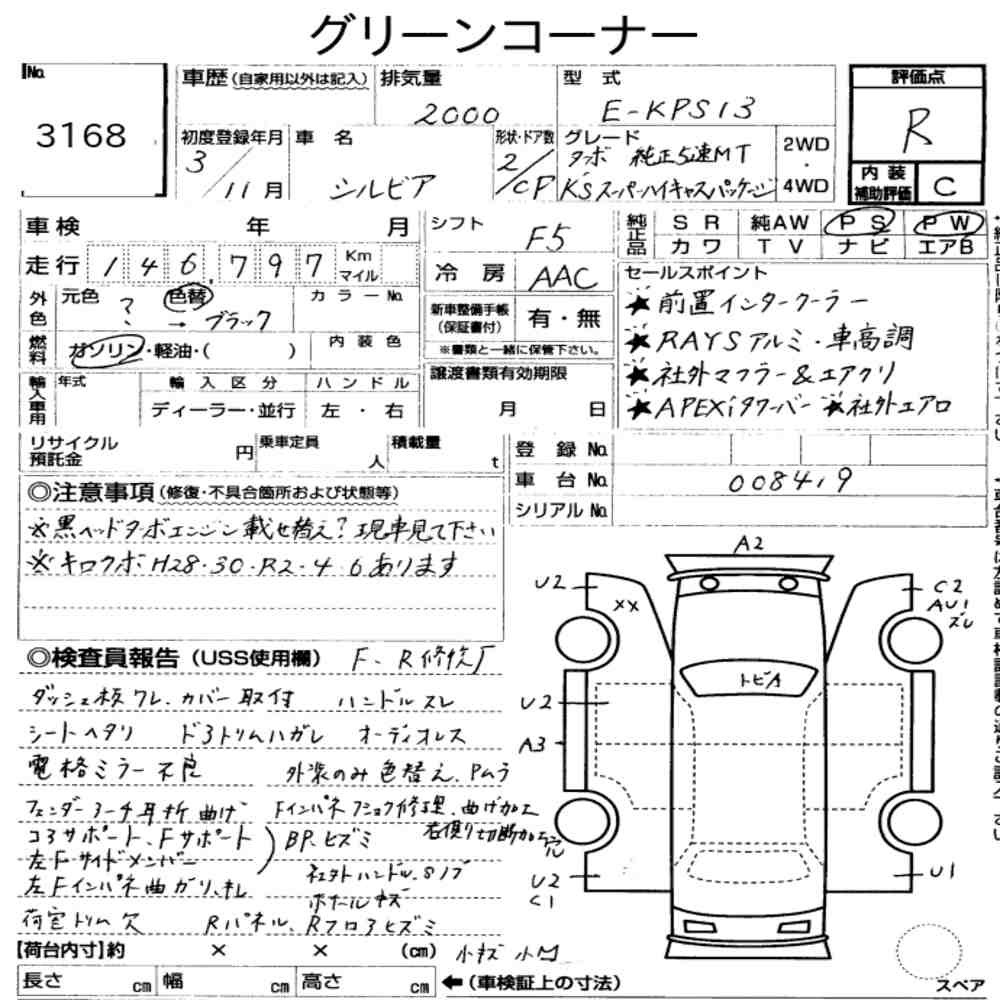 グリーンコーナー
No.
3168
車歴(自家用以外は記入)
排気量
2000
型 式
E-KPS13
評価点
R
初度登録年月
3/11月
車 名
シルビア
形状・ドア数
2/CP
グレード
ターボ 純正5速MT
K'Sスーパーハイキャスパッケージ
2WD
・
4WD
内 装
補助評価
C
車 検 年 月
シフト
F5
純正品
SR 純AW PS PW
カワ TV ナビ エアB
走 行 146,797 Km
マイル
冷 房 AAC
外色
元色 ? → 色替 ブラック
カラーNo.
新車整備手帳
(保証書付)
有・無
※書類と一緒に保管下さい。
燃料
ガソリン・軽油・( )
内 装 色
セールスポイント
★前置インタークーラー
★RAYSアルミ・車高調
★社外マフラー&エアクリ
★APEXiタワーバー ★社外エアロ
輸入車用
年式
輸 入 区 分
ディーラー・並行
ハ ン ド ル
左 ・ 右
譲渡書類有効期限
月 日
リサイクル
預託金
円
乗車定員
人
積載量
t
登 録 No.
車 台 No. 008419
シリアル No.
◎注意事項(修復・不具合箇所および状態等)
※黒ヘッドターボエンジン載せ替え?現車見て下さい
※キロクボH28・30・R2・4・6あります
◎検査員報告(USS使用欄) F、R修復
ダッシュ板ワレ、カバー取付 ハンドルスレ
シートヘタリ ド3トリムハガレ オーディオレス
電格ミラー不良 外装のみ色替え、Pムラ
フェンダーアーチ耳折曲げ Fインパネ 修理、曲げ加工
コアサポート、Fサポート BP、ヒズミ 切断加工
左Fサイドメンバー
左Fインパネ曲 社外ハンドル、S/ノブ
荷室トリム欠 Rパネル、Rフロアヒズミ
【荷台内寸】約 × × (cm) 小キズ 小凹
長さ cm 幅 cm 高さ cm ←(車検証上の寸法)
A2
U2
XX
C2
AU1
ズレ
トビA
U2
A3
U2
C1
U1
スペア